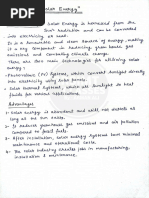 "Solar Energy"
Solar Energy is harnessed from the
Sun's radiation and can be converted
into electricity or heat.
It is a renewable and clean source of energy, making
it a key component in reducing green house gas
emissions and combating climate change.
There are two main technologies for utilizing solar
energy:
- Photovoltaic (PV) Systems, which convert sunlight directly
into electricity using solar panels.
- Solar thermal Systems, which use sunlight to produce
heat for various applications.
Advantages
1- Solar energy is abundant and will not deplete as
long as the sun exists.
2- It produces greenhouse gas emissions and air pollution
compared to fossil fuels.
3- After installation, solar energy systems have minimal
maintenance and operational costs.
4- The solar industry creates jobs in manufacturing,
installation & maintenance.